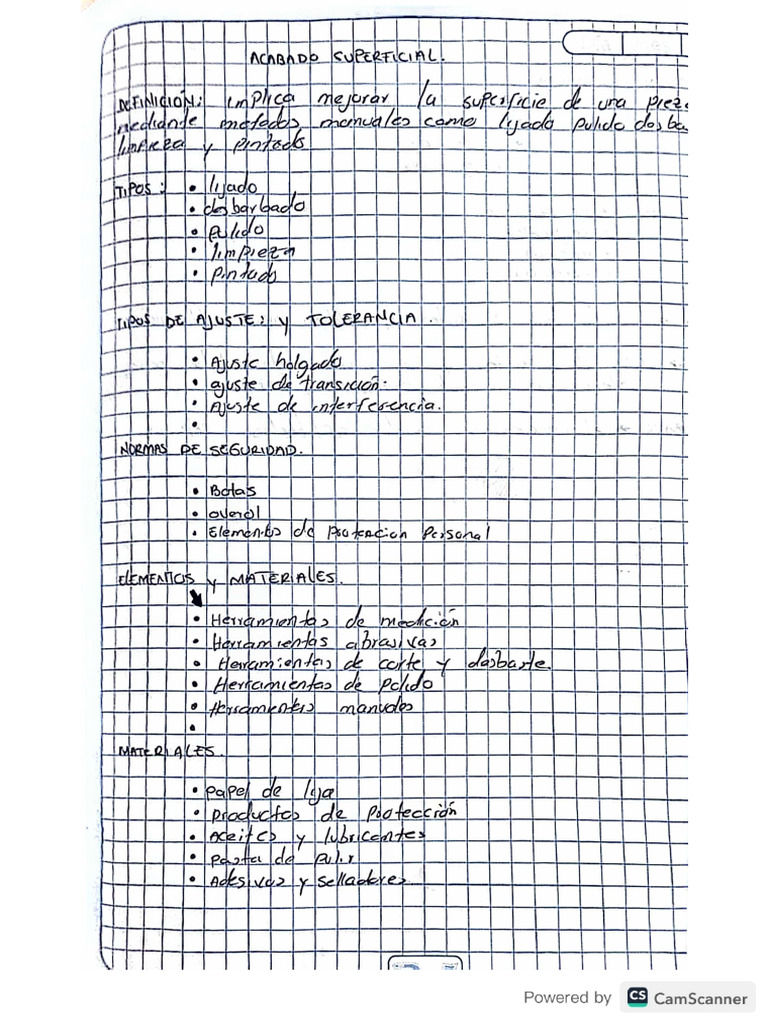 ACABADO SUPERFICIAL.
DEFINICIÓN: implica mejorar la superficie de una pieza
mediante metodos manuales como lijado pulido desba
limpieza y pintado
TIPOS: • lijado
• desbarbado
• pulido
• limpieza
• pintado
TIPOS DE AJUSTE: y TOLERANCIA.
• Ajuste holgado
• ajuste de transición.
• Ajuste de interferencia.
•
NORMAS DE SEGURIDAD.
• Botas
• overol
• Elementos de Proteccion Personal
ELEMENTOS y MATERIALES.
• Herramientas de medición
• Herramientas abrasivas
• Herramientas de corte y desbaste.
• Herramientas de Pulido
• Herramientas manuales
•
MATERIALES.
• Papel de lija
• Productos de Protección
• Aceites y lubricantes
• Pasta de pulir
• Adesivos y selladores
Powered by CS CamScanner